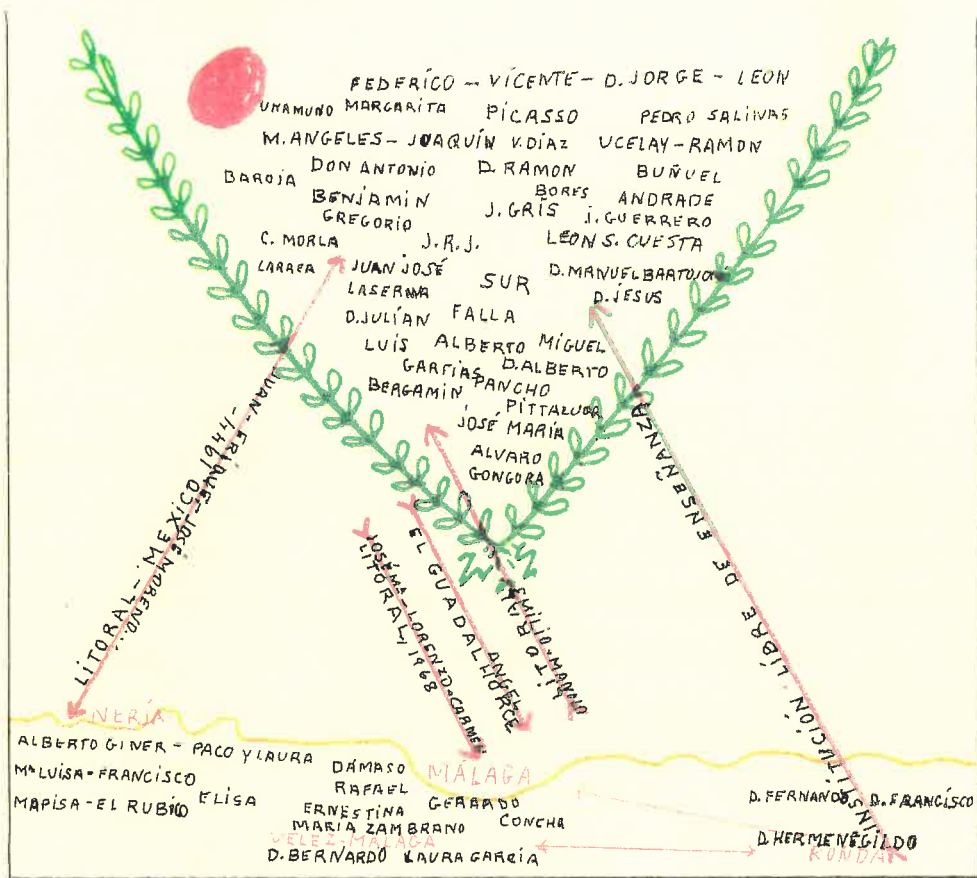 FEDERICO - VICENTE - D. JORGE - LEON
UNAMUNO MARGARITA PICASSO PEDRO SALINAS
M. ANGELES - JOAQUÍN V. DÍAZ UCELAY - RAMON
BAROJA DON ANTONIO D. RAMON BUÑUEL
BENJAMIN BORES ANDRADE
GREGORIO J. GRIS J. GUERRERO
C. MORLA J.R.J. LEON S. CUESTA
LARREA JUAN JOSÉ SUR D. MANUEL BARTOLOMÉ
LASERNA D. JESUS
D. JULIÁN FALLA
LUÍS ALBERTO MÍGUEL
GARFIAS D. ALBERTO
BERGAMIN PANCHO
PITTALUGA
JOSÉ MARÍA
ALVARO
GONGORA
LITORAL - MEXICO 1944 -
JUAN - - JOSÉ MORENO...
JOSÉ Mª - LORENZO - CARMEN
LITORAL, 1968
EL GUADALHORCE
ANGEL
LITORAL
EMILIO - MANOLO
INSTITUCIÓN LIBRE DE ENSEÑANZA
NERJA
ALBERTO GINER - PACO Y LAURA
Mª LUISA - FRANCISCO
MAPISA - EL RUBICO ELISA
DÁMASO MÁLAGA
RAFAEL
ERNESTINA GERARDO
MARIA ZAMBRANO CONCHA
VELEZ-MALAGA
D. BERNARDO LAURA GARCÍA
D. FERNANDO D. FRANCISCO
D. HERMENEGILDO
RONDA